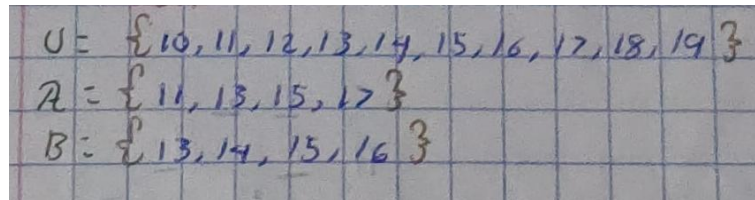 U = {10, 11, 12, 13, 14, 15, 16, 17, 18, 19}
A = {11, 13, 15, 17}
B = {13, 14, 15, 16}